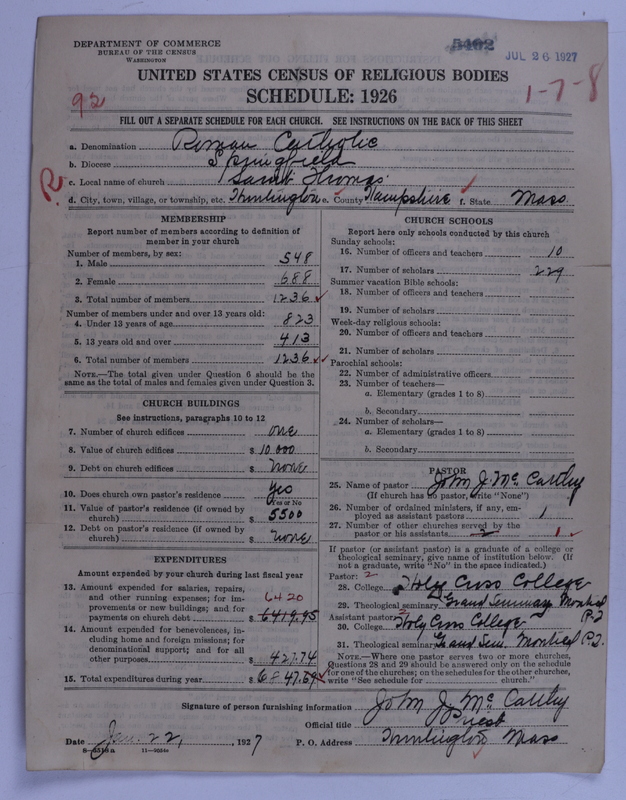 DEPARTMENT OF COMMERCE
BUREAU OF THE CENSUS
WASHINGTON
5402
JUL 26 1927
UNITED STATES CENSUS OF RELIGIOUS BODIES
SCHEDULE: 1926
92
1-7-8
FILL OUT A SEPARATE SCHEDULE FOR EACH CHURCH. SEE INSTRUCTIONS ON THE BACK OF THIS SHEET
a. Denomination Roman Catholic
b. Diocese Springfield
c. Local name of church Saint Thomas
R
d. City, town, village, or township, etc. Huntington e. County Hampshire f. State Mass
MEMBERSHIP
Report number of members according to definition of
member in your church
Number of members, by sex:
1. Male 548
2. Female 688
3. Total number of members 1236
Number of members under and over 13 years old:
4. Under 13 years of age 823
5. 13 years old and over 413
6. Total number of members 1236
NOTE.—The total given under Question 6 should be
same as the total of males and females given under Question 3.
CHURCH BUILDINGS
See instructions, paragraphs 10 to 12
7. Number of church edifices one
8. Value of church edifices $ 10.000
9. Debt on church edifices $ none
10. Does church own pastor's residence Yes
Yes or No
11. Value of pastor's residence (if owned by
church) $ 5500
12. Debt on pastor's residence (if owned by
church) $ none
EXPENDITURES
Amount expended by your church during last fiscal year
13. Amount expended for salaries, repairs,
and other running expenses; for im-
provements or new buildings; and for
payments on church debt $ 6419.95
6420
14. Amount expended for benevolences, in-
cluding home and foreign missions; for
denominational support; and for all
other purposes $ 427.74
15. Total expenditures during year $ 6847.69
CHURCH SCHOOLS
Report here only schools conducted by this church
Sunday schools:
16. Number of officers and teachers 10
17. Number of scholars 229
Summer vacation Bible schools:
18. Number of officers and teachers
19. Number of scholars
Week-day religious schools:
20. Number of officers and teachers
21. Number of scholars
Parochial schools:
22. Number of administrative officers
23. Number of teachers—
a. Elementary (grades 1 to 8)
b. Secondary
24. Number of scholars—
a. Elementary (grades 1 to 8)
b. Secondary
PASTOR
25. Name of pastor John J. Mc Carthy
(If church has no pastor, write "None")
26. Number of ordained ministers, if any, em-
ployed as assistant pastors 1
27. Number of other churches served by the
pastor or his assistants 2 1
If pastor (or assistant pastor) is a graduate of a college or
theological seminary, give name of institution below. (If
not a graduate, write "No" in the space indicated.)
Pastor: 2
28. College Holy Cross College
29. Theological seminary Grand Seminary Montreal P.Q
Assistant pastor: 2
30. College Holy Cross College
31. Theological seminary Grand Sem. Montreal P.Q.
NOTE.—Where one pastor serves two or more churches,
Questions 28 and 29 should be answered only on the schedule
for one of the churches; on the schedules for the other churches,
write "See schedule for church."
Signature of person furnishing information John J. Mc Carthy
Official title Priest
Date Jan. 22, 1927 P. O. Address Huntington Mass